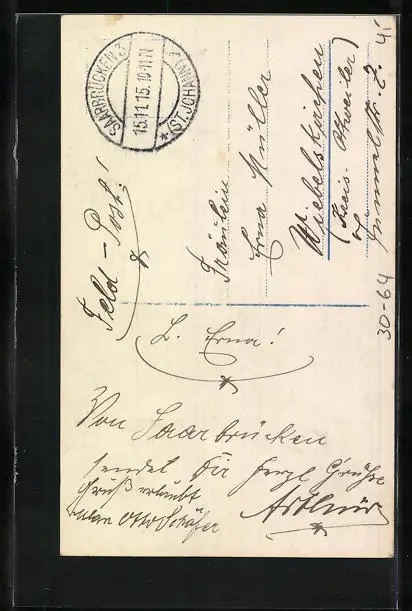 SAARBRÜCKEN 3
15.11.15.10-11.N
* (ST. JOHANN) 1
Feld - Post!
Fräulein
Erna Müller
Wiebelskirchen
(Kreis. Ottweiler)
41
30-64
L. Erna!
Von Saarbrücken
sendet Dir herzl Grüße
Arthur
Gruß erlaubt
Otto Schäfer